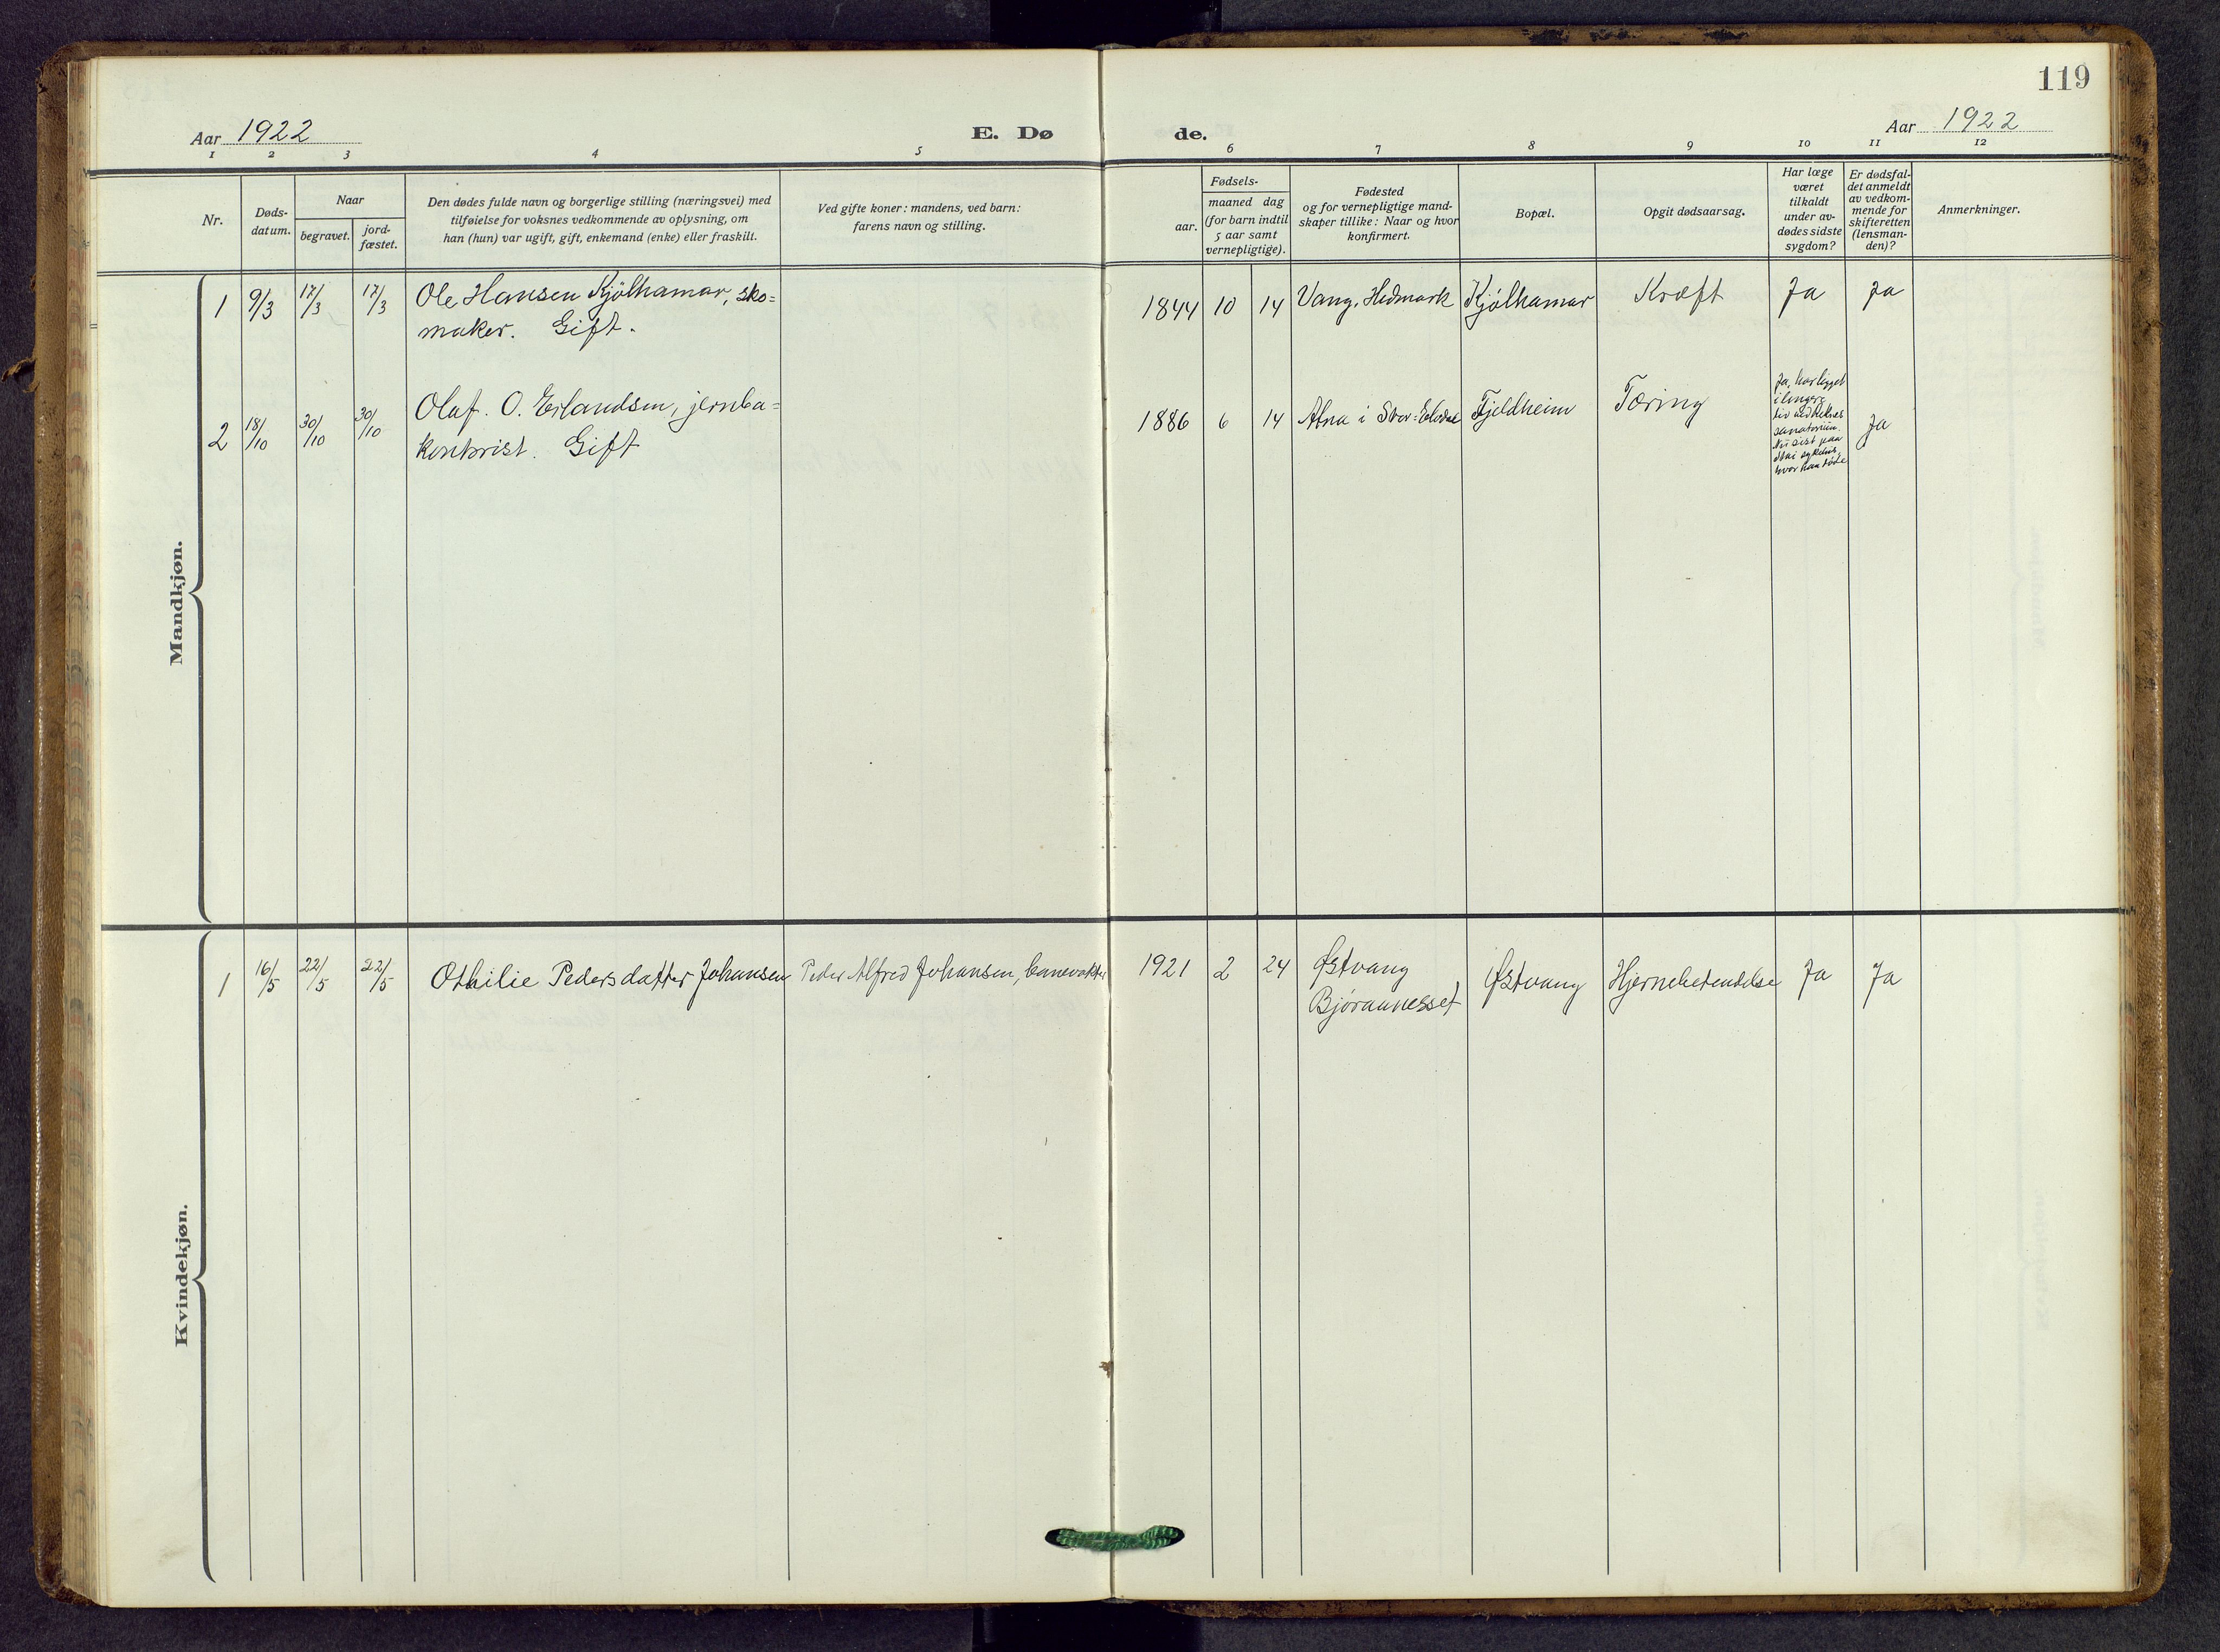 119
Aar 1922
E. Dø
de.
Aar 1922
1 2 3 4 5 6 7 8 9 10 11 12
Nr.
Døds-
datum.
Naar
begravet.
jord-
fæstet.
Den dødes fulde navn og borgerlige stilling (næringsvei) med
tilføielse for voksnes vedkommende av oplysning, om
han (hun) var ugift, gift, enkemand (enke) eller fraskilt.
Ved gifte koner: mandens, ved barn:
farens navn og stilling.
aar.
Fødsels-
maaned dag
(for barn indtil
5 aar samt
vernepligtige).
Fødested
og for vernepligtige mand-
skaper tillike: Naar og hvor
konfirmert.
Bopæl.
Opgit dødsaarsag.
Har læge
været
tilkaldt
under av-
dødes sidste
sygdom?
Er dødsfal-
det anmeldt
av vedkom-
mende for
skifteretten
(lensman-
den)?
Anmerkninger.
Mandkjøn.
1 9/3 17/3 17/3 Ole Hansen Kjölhamar, sko= 1844 10 14 Vang. Hedmark Kjölhamar Kræft Ja Ja
maker. Gift.
2 18/10 30/10 30/10 Olaf. O. Erlandsen, jernba= 1886 6 14 Atna i Stor-Elvdal Fjeldheim Tæring Ja
kontorist. Gift
Ja, har ligget
i længere
tid ved
sanatorium.
sist paa
hvor han døde
Kvindekjøn.
1 16/5 22/5 22/5 Othilie Pedersdatter Johansen Peder Alfred Johansen, banevokter 1921 2 24 Østvang Østvang Hjernebetendelse Ja Ja
Björaunesset